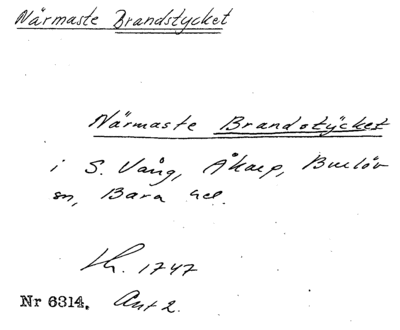 Närmaste Brandstycket
Närmaste Brandstycket
i S. Vång, Åkarp, Burlöv
sn, Bara hd.
Lh. 1747
Nr 6314. Akt 2.